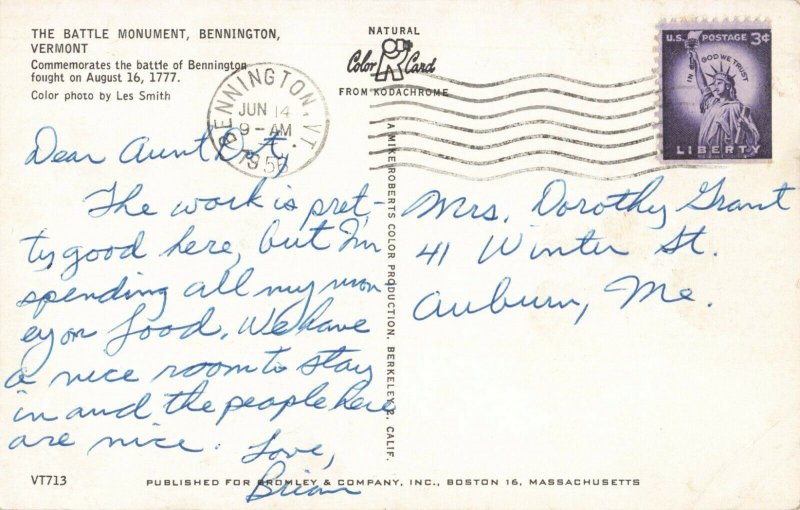 THE BATTLE MONUMENT, BENNINGTON,
VERMONT
Commemorates the battle of Bennington
fought on August 16, 1777.
Color photo by Les Smith
NATURAL
Color Card
FROM KODACHROME
BENNINGTON, VT.
JUN 14
9-AM
U.S. POSTAGE 3¢
IN GOD WE TRUST
LIBERTY
Dear Aunt Dot,
The work is pret-
ty good here, but I'm
spending all my mon
ey on food. We have
a nice room to stay
in and the people here
are nice. Love,
Brian
A MIKE ROBERTS COLOR PRODUCTION, BERKELEY 2, CALIF.
Mrs. Dorothy Grant
41 Winter St.
Auburn, Me.
VT713
PUBLISHED FOR BROMLEY & COMPANY, INC., BOSTON 16, MASSACHUSETTS